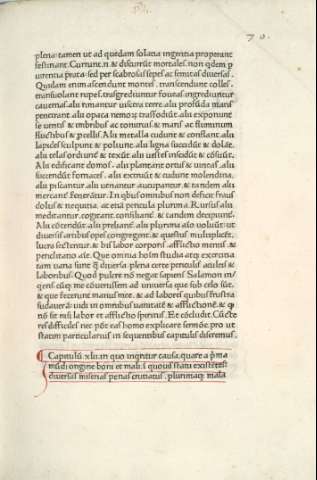 70.
plena: tamen ut ad quedam solatia ingentia properant
festinant. Currunt.n. & discurrũt mortales. non qdem p
virentia prata. sed per scabrosas sepes ac semitas diversas.
Quidam enim ascendunt montes. transcendunt colles.
transvolant rupes. trasgrediuntur foveas. ingrediuntur
cavernas. alii rimantur viscera terre. alii profũda maris
penetrant. alii opaca nemorum trasfodiũt. alii exponunt
se ventis & imbribus ac tonitruis & maris ac fluminum
fluctibus & pcellis. Alii metalla cudunt & conflant. alii
lapides sculpunt & poliunt. alii ligna succidũt & dolãt.
alii telas ordiunt & texũt. alii vestes insidũt & cõsuũt.
Alii edificant domos. alii plantant ortus & vineas. alii
succendũt fornaces. alii extruũt & cudunt molendina.
alii piscantur. alii venantur. aucupantur. & tandem alii
mercant feneratur. In qbus omnibus non deficit fraus
dolus & nequitia. ac etiã pericula plurima. Rursus alii
meditantur. cogitant. consiliant. & tandem decipiunt.
Alii cõtendũt. alii preliant. alii plurima
diversis artibus opes congregant. & questus multiplicãt.
lucra sectentur. & his labor corporis. afflictio mentis. &
penitentia aie. Que omnia hoim studia atq exercitia
tam vana sunt q diversa plena certe periculis aculeis &
laboribus. Quod pulcre nõ negat sapiens Salomon in
qens cũq me cõvertissem ad universa que sub celo sũt.
& que fecerunt manus mee. & ad labores quibus frustra
sudaverã: vidi in omnibus vanitatẽ & afflictionẽ. & qp
nõ sit nisi labor et afflictio spiritus. Et cõcludit. Cũcte
res difficiles nec põt eas homo explicare sermõe. pro ut
statim particularius in sequentibus capitulis diseremus.
Capitulũ. xlii. in quo inqritur causa. quare a pma
mũdi origine boni et mali. i quovis statu existẽtes
diversas miserias penas cruciatus. plurimaq mala